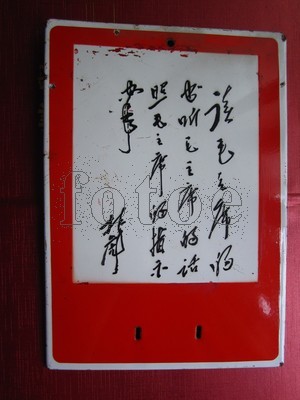 读毛主席的
书听毛主席的话
照毛主席的指示
办事
林彪
fotoe